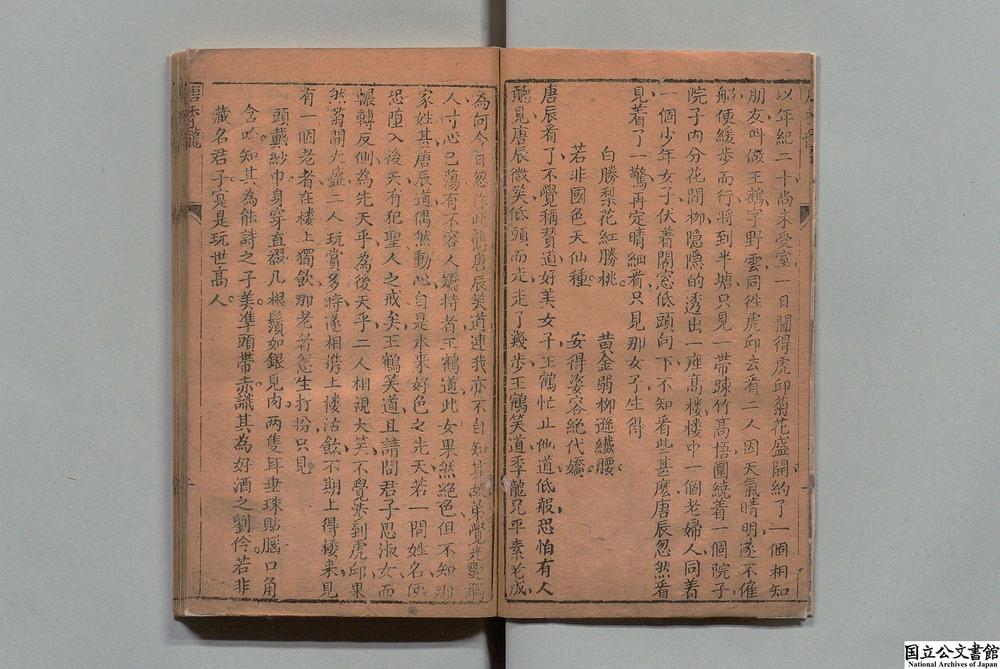 以年紀二十尚未受室一日聞得虎邱菊花盛開約了一個相知
朋友叫做王鶴字野雲同徃虎邱去看二人因天氣晴明遂不催
船便緩步而行將到半塘只見一帶踈竹髙梧圍繞着一個院子
院子内分花間柳隱隱的透出一座髙楼楼中一個老婦人同着
一個少年女子伏着閣窓低頭向下不知看些甚麽唐辰忽然看
見着了一驚再定晴細看只見那女子生得
白勝梨花紅勝桃　黄金弱柳遜纎腰
若非國色天仙種　安得姿容絶代嬌
唐辰看了不覺稱賛道好美女子王鶴忙止他道低報恐怕有人
聽見唐辰微笑低頭而走走了幾步王鶴笑道季龍兄平素老成
為何今日忽作此態唐辰笑道連我亦不自知其故弟覺光艷
人寸心已蕩有不容人矯持者王鶴道此女果然絶色但不知那
家姓甚唐辰道偶然動心自是未來好色之先天若一問姓名便
恐墮入後天有犯聖人之戒矣王鶴笑道且請問君子思淑女而
輾轉反側為先天乎為後天乎二人相視大笑不覺來到虎邱果
然菊開大盛二人玩賞多時遂相携上楼沽飲不期上得楼來見
有一個老者在楼上獨飲那老者怎生打扮只見
頭戴紗巾身穿直裰几根鬚如銀見肉两隻耳垂珠貼腦口角
含吟知其為能詩之子美準頭帶赤識其為好酒之劉伶若非
藏名君子寔是玩世髙人
唐季龍
一
国立公文書館
National Archives of Japan